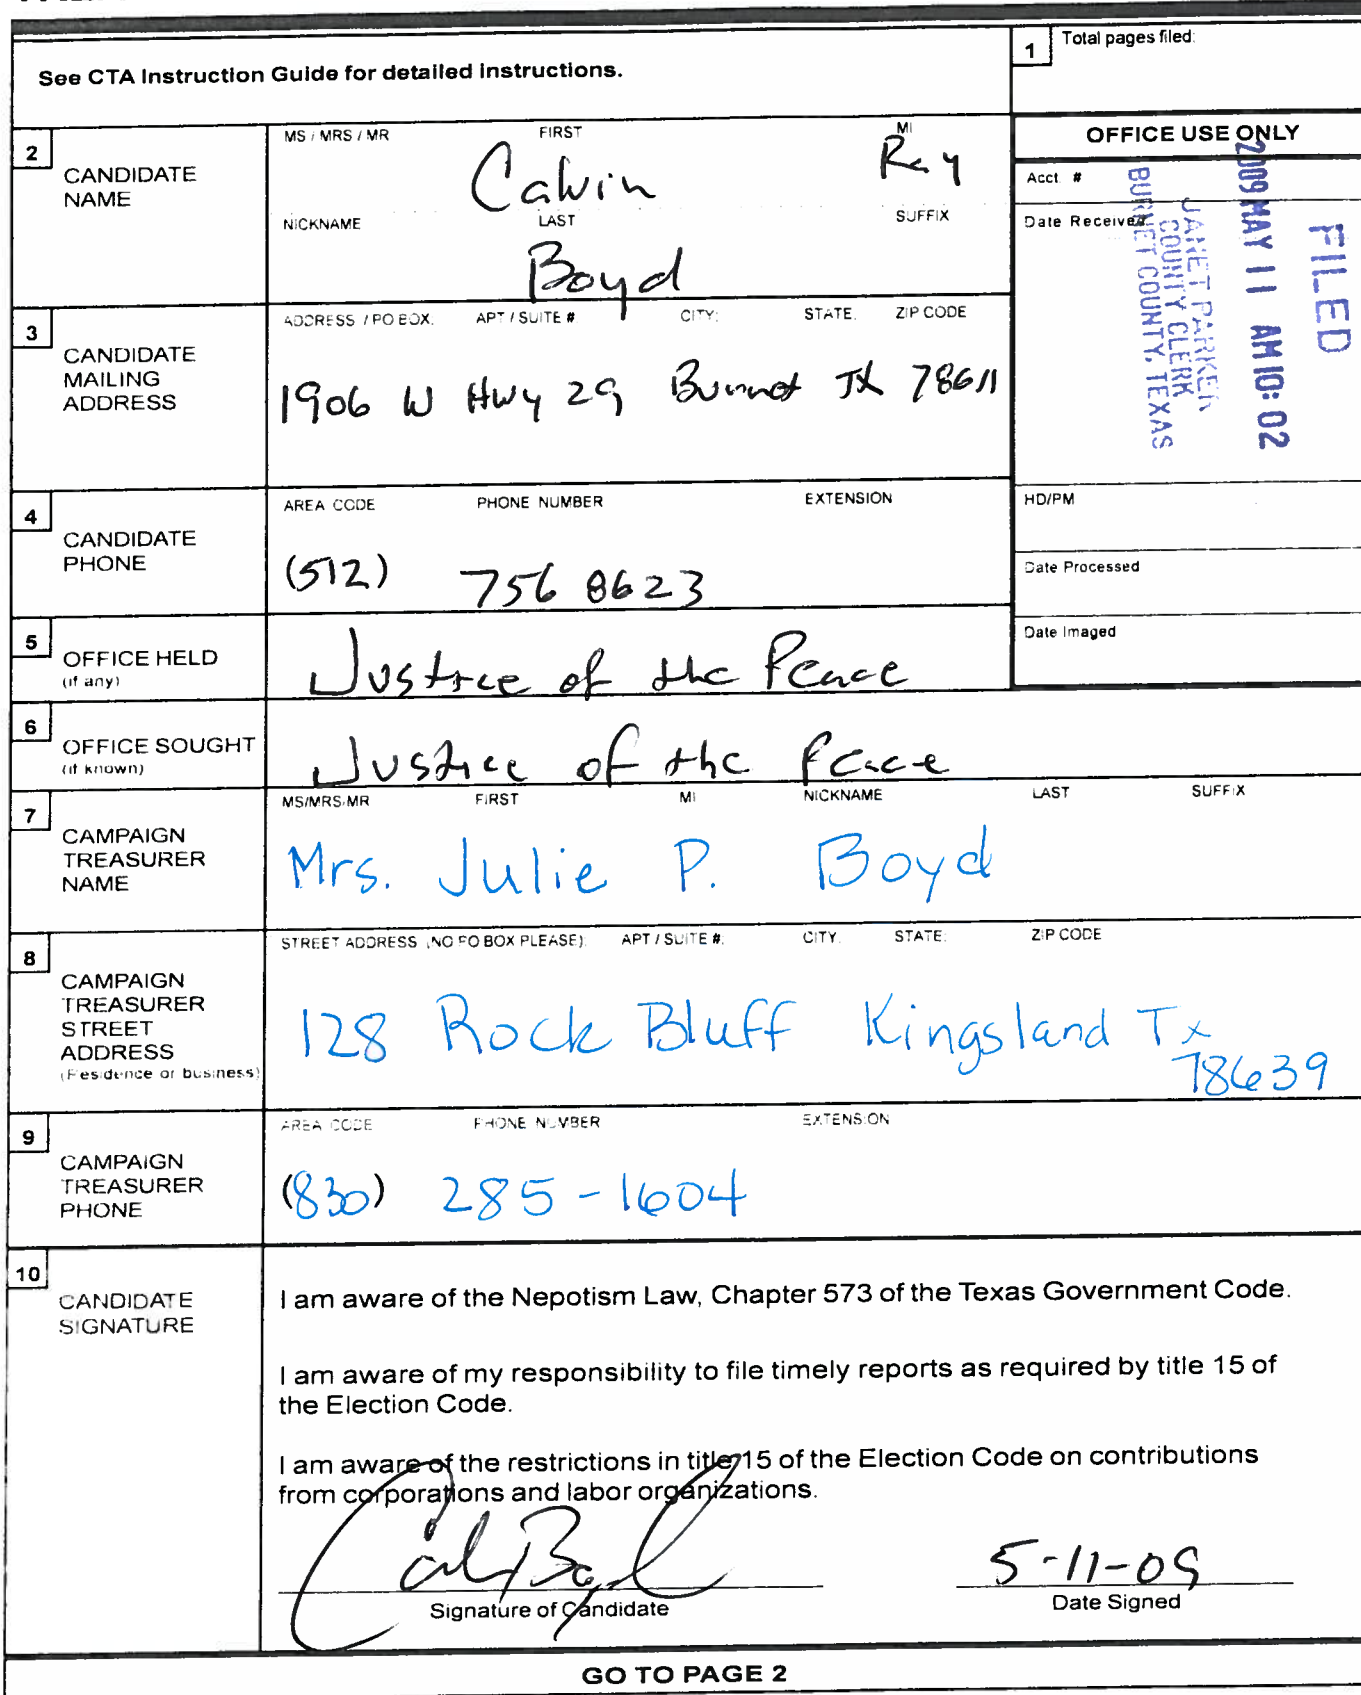 See CTA Instruction Guide for detailed instructions.
1 Total pages filed:
2 CANDIDATE NAME
MS / MRS / MR FIRST MI
Calvin Ray
NICKNAME LAST SUFFIX
Boyd
OFFICE USE ONLY
Acct. #
Date Received
FILED
2009 MAY 11 AM 10:02
JANET PARKER
COUNTY CLERK
BURNET COUNTY, TEXAS
HD/PM
Date Processed
Date Imaged
3 CANDIDATE MAILING ADDRESS
ADDRESS / PO BOX; APT / SUITE # CITY; STATE; ZIP CODE
1906 W Hwy 29 Burnet TX 78611
4 CANDIDATE PHONE
AREA CODE PHONE NUMBER EXTENSION
(512) 756 8623
5 OFFICE HELD (if any)
Justice of the Peace
6 OFFICE SOUGHT (if known)
Justice of the Peace
7 CAMPAIGN TREASURER NAME
MS/MRS/MR FIRST MI NICKNAME LAST SUFFIX
Mrs. Julie P. Boyd
8 CAMPAIGN TREASURER STREET ADDRESS (Residence or business)
STREET ADDRESS (NO PO BOX PLEASE); APT / SUITE #; CITY; STATE; ZIP CODE
128 Rock Bluff Kingsland Tx
78639
9 CAMPAIGN TREASURER PHONE
AREA CODE PHONE NUMBER EXTENSION
(830) 285-1604
10 CANDIDATE SIGNATURE
I am aware of the Nepotism Law, Chapter 573 of the Texas Government Code.
I am aware of my responsibility to file timely reports as required by title 15 of
the Election Code.
I am aware of the restrictions in title 15 of the Election Code on contributions
from corporations and labor organizations.
5-11-09
Signature of Candidate Date Signed
GO TO PAGE 2